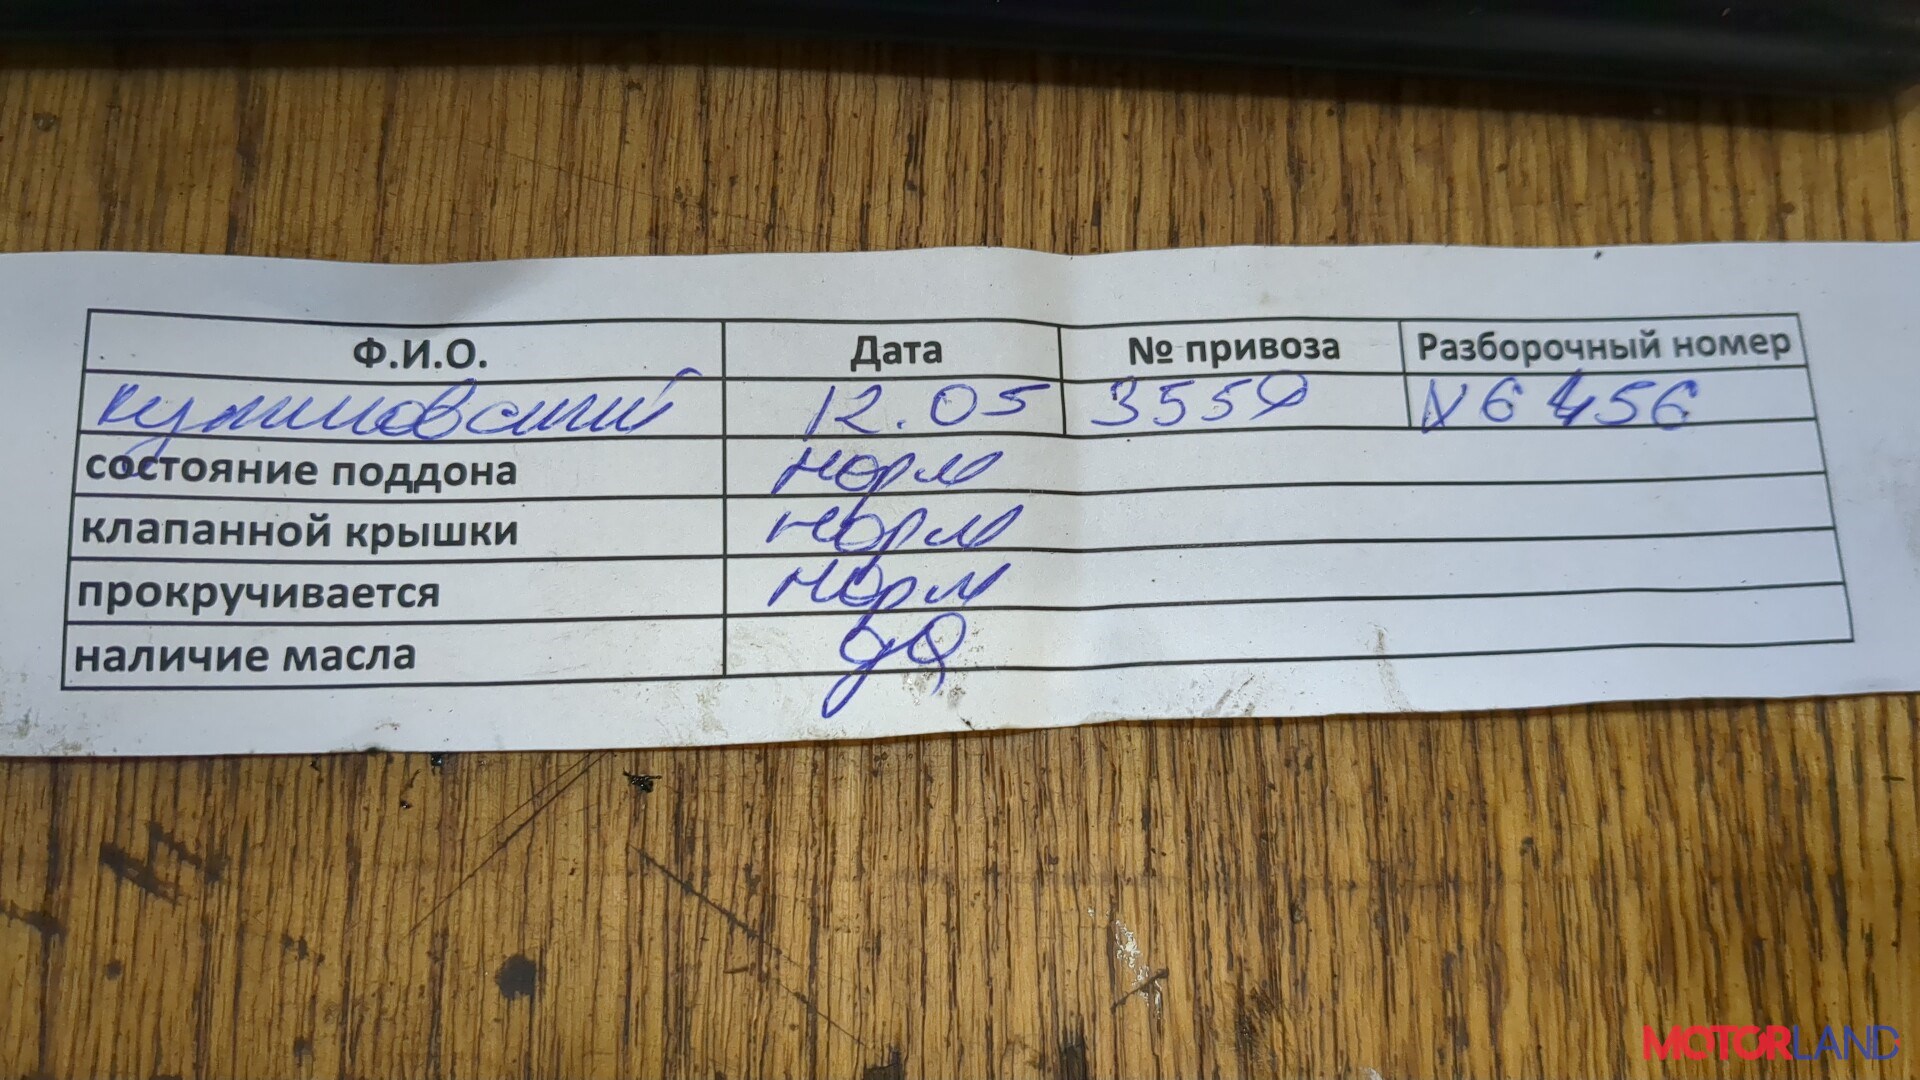 Ф.И.О. Дата № привоза Разборочный номер
12.05 3559 N6456
состояние поддона норм
клапанной крышки норм
прокручивается норм
наличие масла да
MOTORLAND